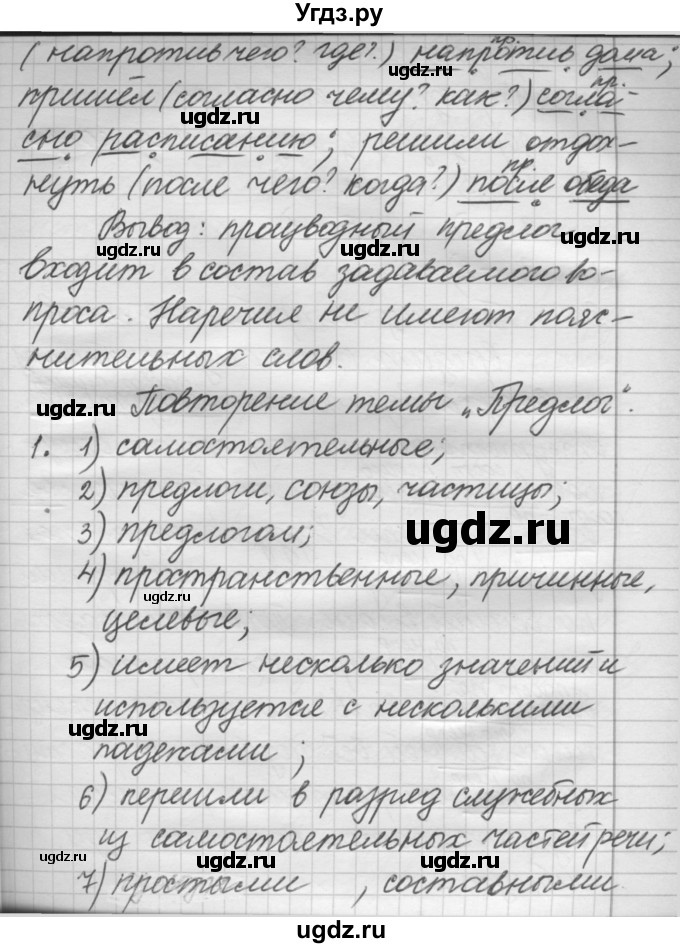 Угдз.ру
(напротив чего? где?) напротив дома;
пр.
ugdz.ru
пришёл (согласно чему? как?) согла-
пр.
ugdz.ru
сно расписанию; решили отдох-
нуть (после чего? когда?) после обеда
пр.
Вывод: производный предлог
ugdz.ru
ugdz.ru
входит в состав задаваемого во-
проса. Наречия не имеют пояс-
нительных слов.
ugdz.ru
Повторение темы „Предлог".
1. 1) самостоятельные;
2) предлоги, союзы, частицы;
3) предлогом;
ugdz.ru
4) пространственные, причинные,
ugdz.ru
целевые;
5) имеет несколько значений и
используется с несколькими
ugdz.ru
падежами;
6) перешли в разряд служебных
из самостоятельных частей речи;
ugdz.ru
ugdz.ru
ugdz.ru
7) простыми, составными
ugdz.ru
ugdz.ru